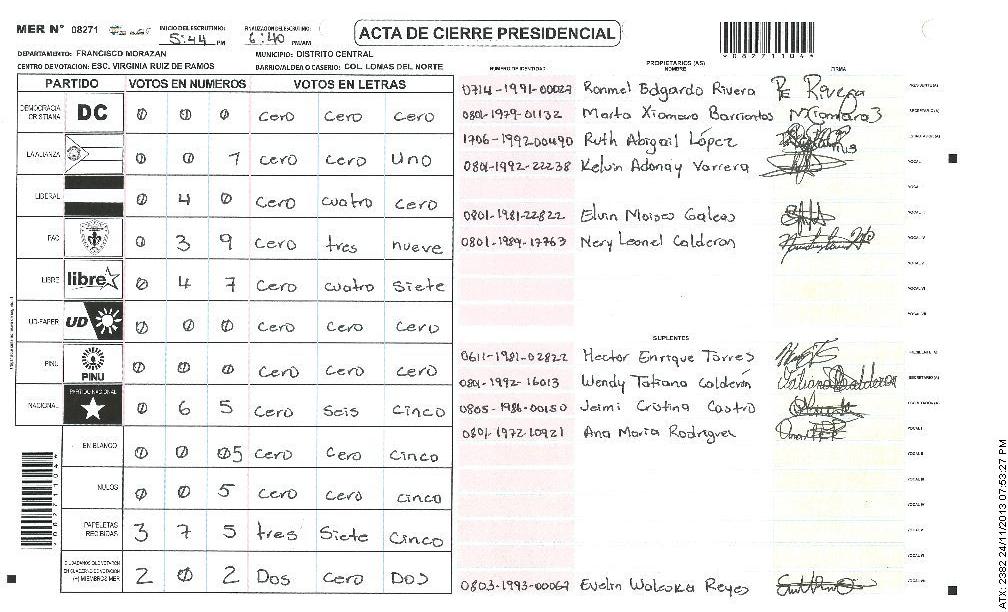 MER N° 08271 INICIO DEL ESCRUTINIO: 5:44 PM FINALIZACION DEL ESCRUTINIO: 6:40 PM/AM
ACTA DE CIERRE PRESIDENCIAL
*08271104*
DEPARTAMENTO: FRANCISCO MORAZAN MUNICIPIO: DISTRITO CENTRAL
CENTRO DE VOTACION: ESC. VIRGINIA RUIZ DE RAMOS BARRIO/ALDEA O CASERIO: COL. LOMAS DEL NORTE
PARTIDO VOTOS EN NUMEROS VOTOS EN LETRAS
DEMOCRACIA CRISTIANA DC 0 0 0 cero cero cero
LA ALIANZA 0 0 1 cero cero uno
LIBERAL 0 4 0 cero cuatro cero
PAC 0 3 9 cero tres nueve
LIBRE libre 0 4 7 cero cuatro siete
UD-FAPER UD 0 0 0 cero cero cero
PINU PINU 0 0 0 cero cero cero
NACIONAL PARTIDO NACIONAL 0 6 5 cero seis cinco
EN BLANCO 0 0 05 cero cero cinco
NULOS 0 0 5 cero cero cinco
PAPELETAS RECIBIDAS 3 7 5 tres siete cinco
CIUDADANOS QUE VOTARON EN CUADERNO DE VOTACION (+) MIEMBROS MER 2 0 2 Dos cero Dos
NUMERO DE IDENTIDAD PROPIETARIOS (AS) NOMBRE FIRMA
0714-1991-00029 Ronmel Edgardo Rivera RE Rivera PRESIDENTE (A)
0801-1979-01132 Marta Xiomara Barrientos MXiomara3 SECRETARIO (A)
1706-199200490 Ruth Abigail López ESCRUTADOR (A)
0801-1992-22238 Kelvin Adonay Varrera VOCAL I
0801-1981-22822 Elvin Moises Galeas
0801-1989-17763 Nery Leonel Calderon
SUPLENTES
0611-1981-02822 Hector Enrique Torres PRESIDENTE (A)
0801-1992-16013 Wendy Tatiana Calderón SECRETARIO (A)
0805-1986-00150 Jeimi Cristina Castro ESCRUTADOR (A)
0801-1972-10921 Ana María Rodriguez VOCAL I
0803-1993-00069 Evelin Waleska Reyes
*08271104*
ATX-2382 24/11/2013 07:53:27 PM